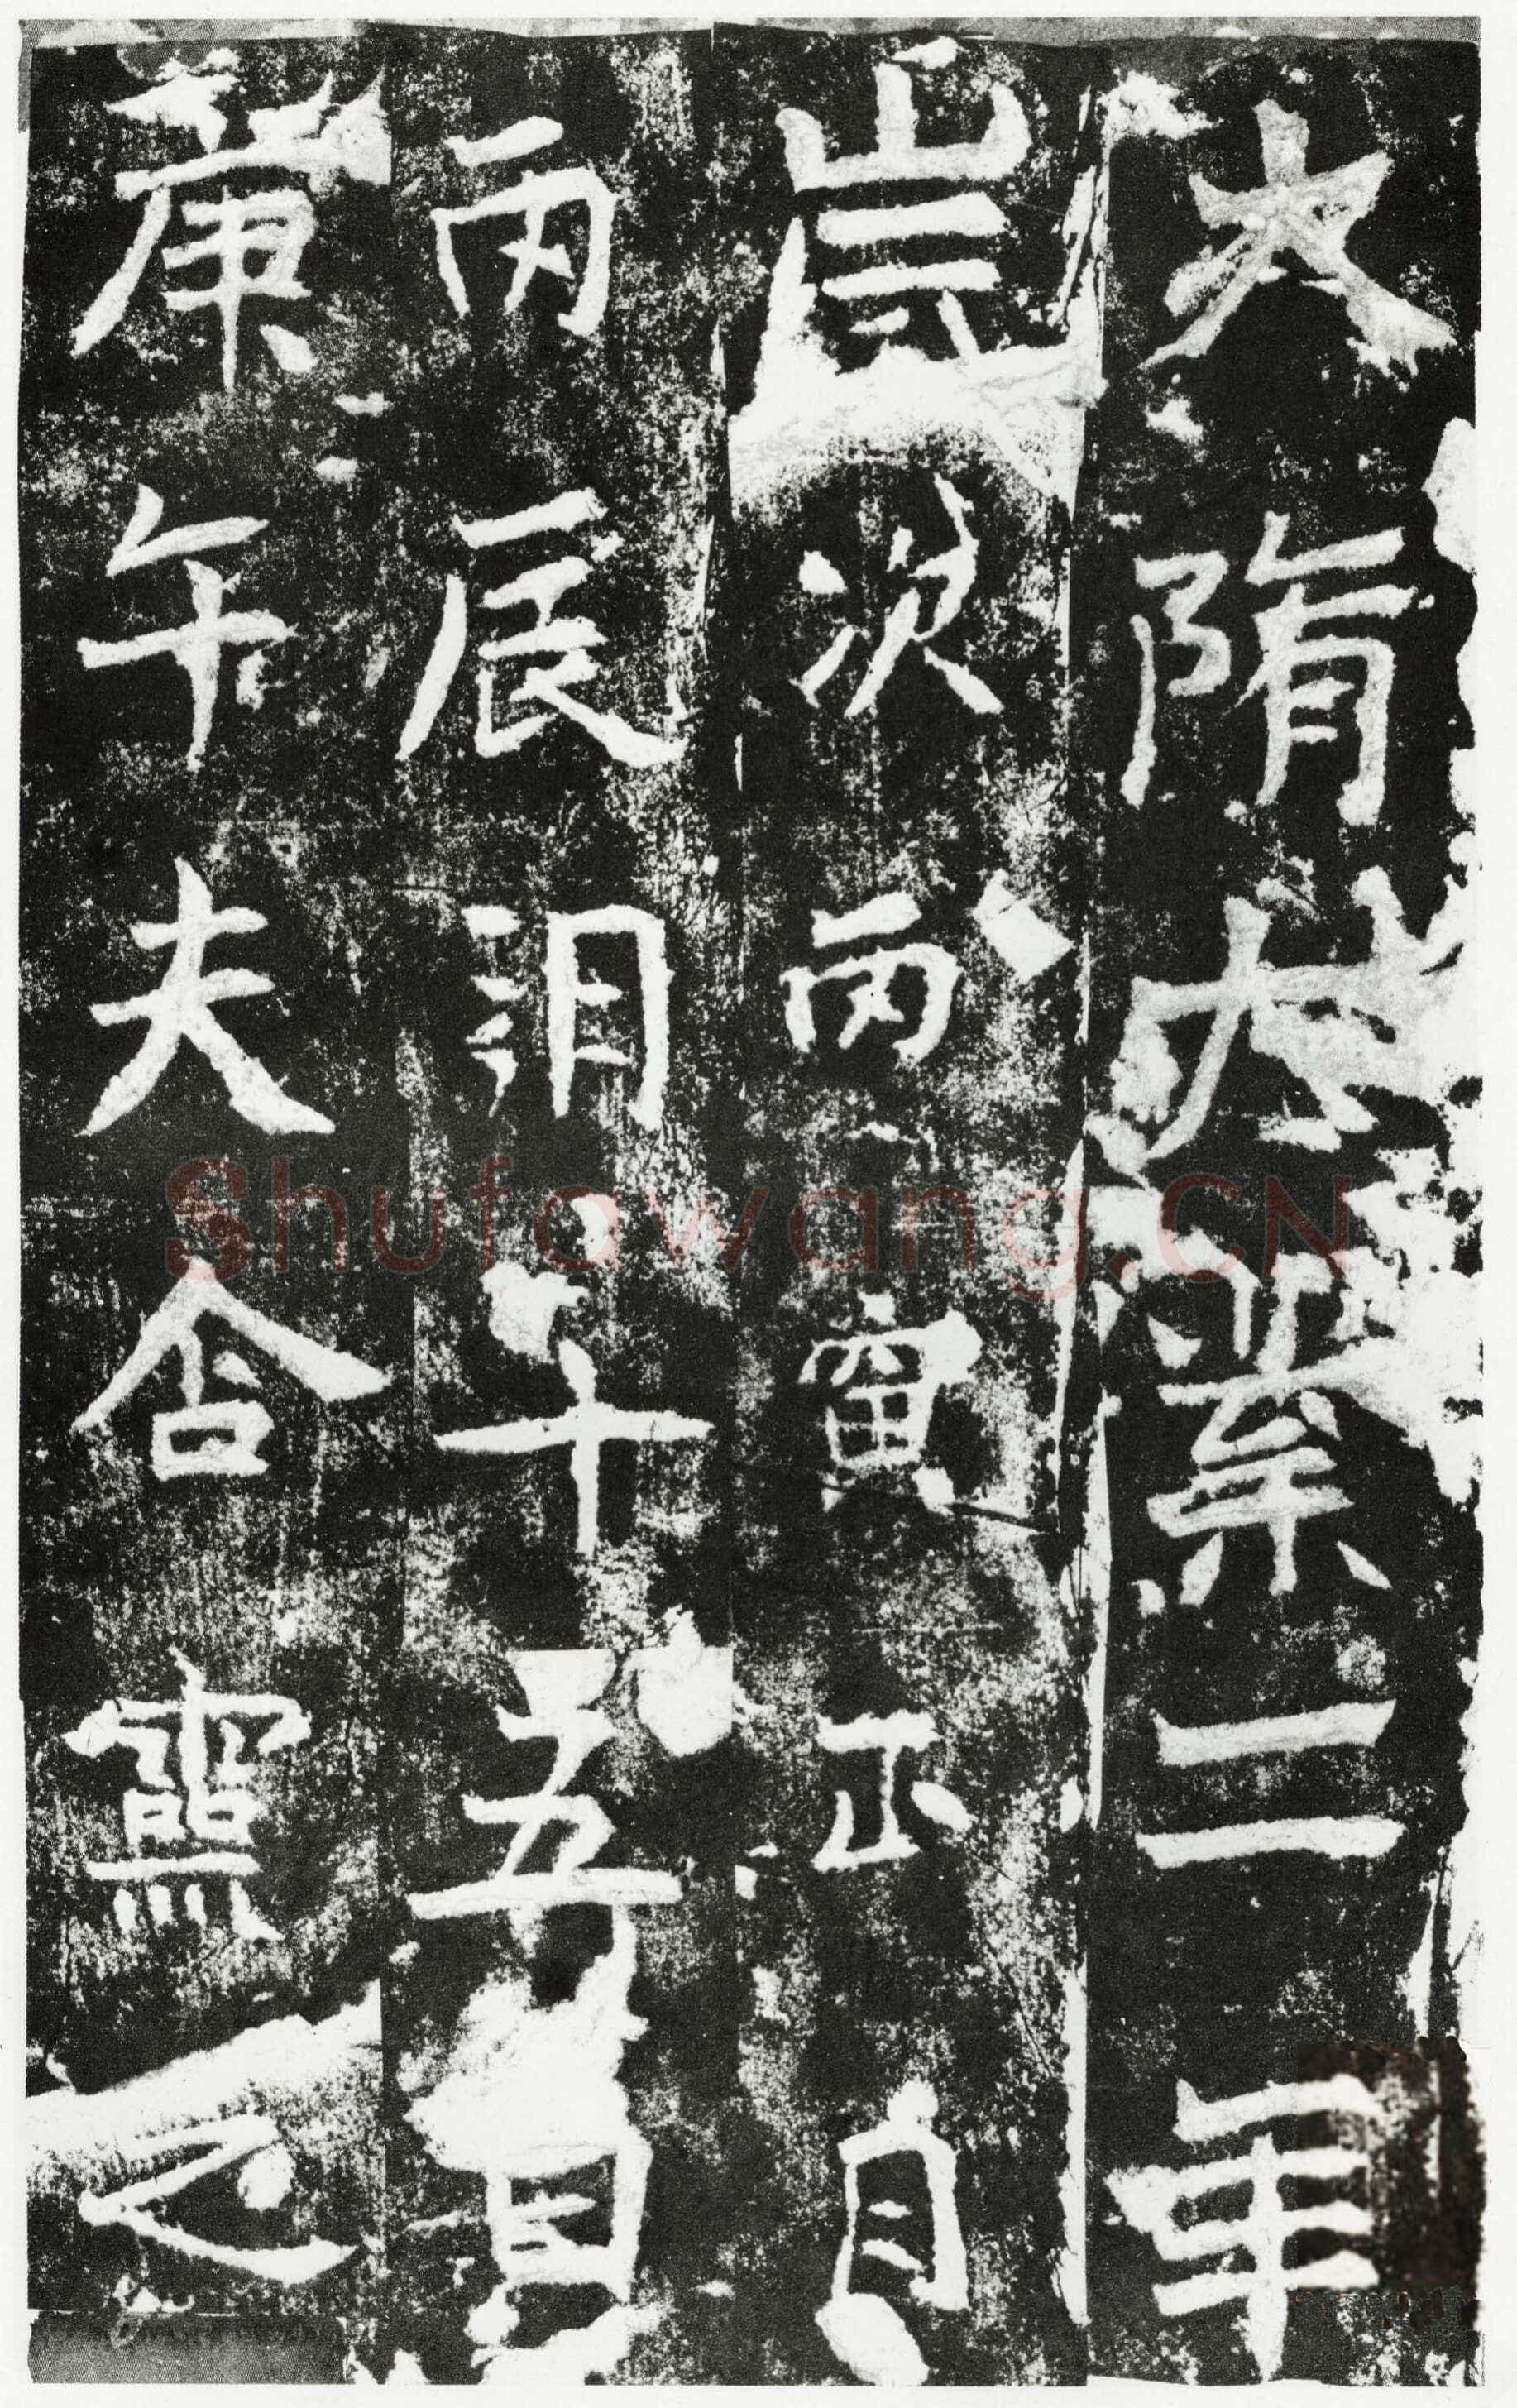 大隋大業二年
歲次丙寅正月
丙辰朔十五日
庚午夫含靈之
Shufawang.CN